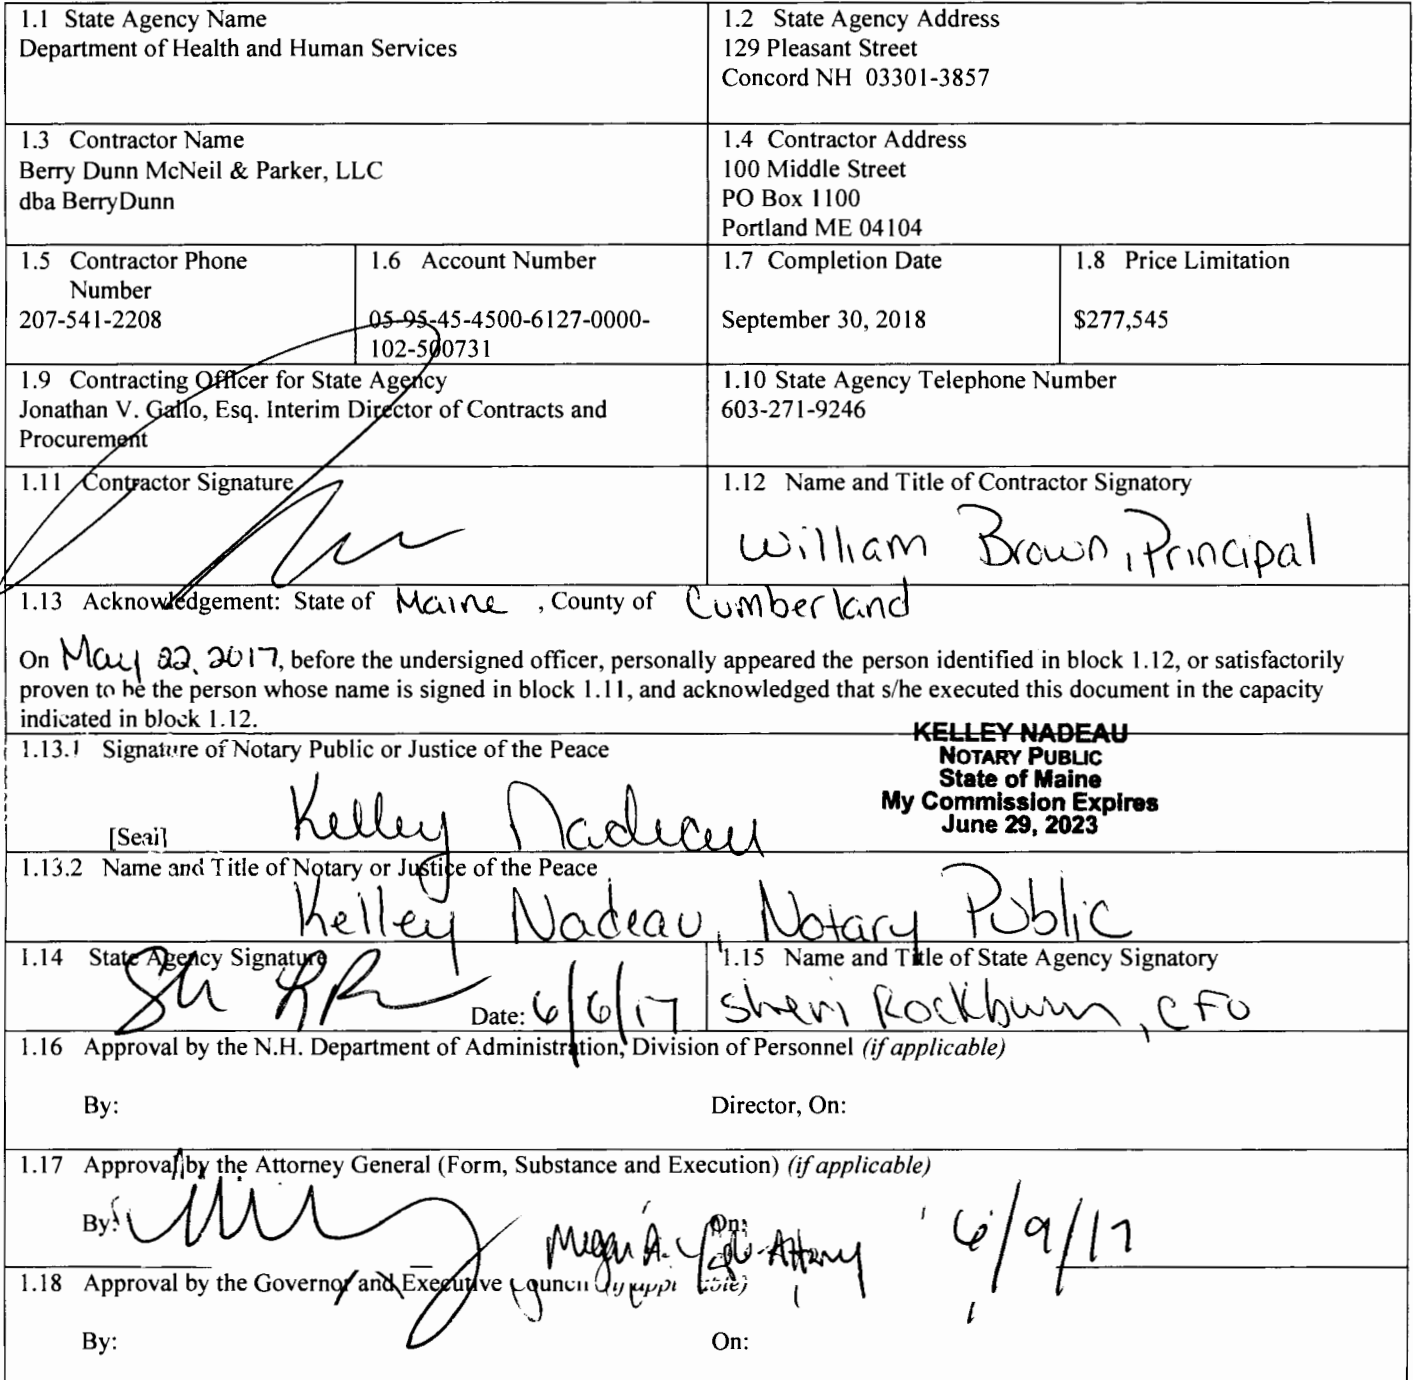 1.1 State Agency Name
Department of Health and Human Services
1.2 State Agency Address
129 Pleasant Street
Concord NH 03301-3857
1.3 Contractor Name
Berry Dunn McNeil & Parker, LLC
dba BerryDunn
1.4 Contractor Address
100 Middle Street
PO Box 1100
Portland ME 04104
1.5 Contractor Phone
Number
207-541-2208
1.6 Account Number
05-95-45-4500-6127-0000-
102-500731
1.7 Completion Date
September 30, 2018
1.8 Price Limitation
$277,545
1.9 Contracting Officer for State Agency
Jonathan V. Gallo, Esq. Interim Director of Contracts and
Procurement
1.10 State Agency Telephone Number
603-271-9246
1.11 Contractor Signature
1.12 Name and Title of Contractor Signatory
William Brown, Principal
1.13 Acknowledgement: State of Maine , County of Cumberland
On May 22, 2017, before the undersigned officer, personally appeared the person identified in block 1.12, or satisfactorily
proven to be the person whose name is signed in block 1.11, and acknowledged that s/he executed this document in the capacity
indicated in block 1.12.
1.13.1 Signature of Notary Public or Justice of the Peace
KELLEY NADEAU
NOTARY PUBLIC
State of Maine
My Commission Expires
June 29, 2023
[Seal] Kelley Nadeau
1.13.2 Name and Title of Notary or Justice of the Peace
Kelley Nadeau, Notary Public
1.14 State Agency Signature
Date: 6/6/17
1.15 Name and Title of State Agency Signatory
Sheri Rockburn, CFO
1.16 Approval by the N.H. Department of Administration, Division of Personnel (if applicable)
By: Director, On:
1.17 Approval by the Attorney General (Form, Substance and Execution) (if applicable)
By: Megan A. Attorney On: 6/9/17
1.18 Approval by the Governor and Executive Council
By: On: